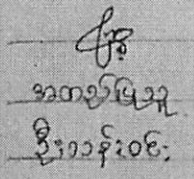 အတည်ပြုသူ
ဦးသန်းဝင်း